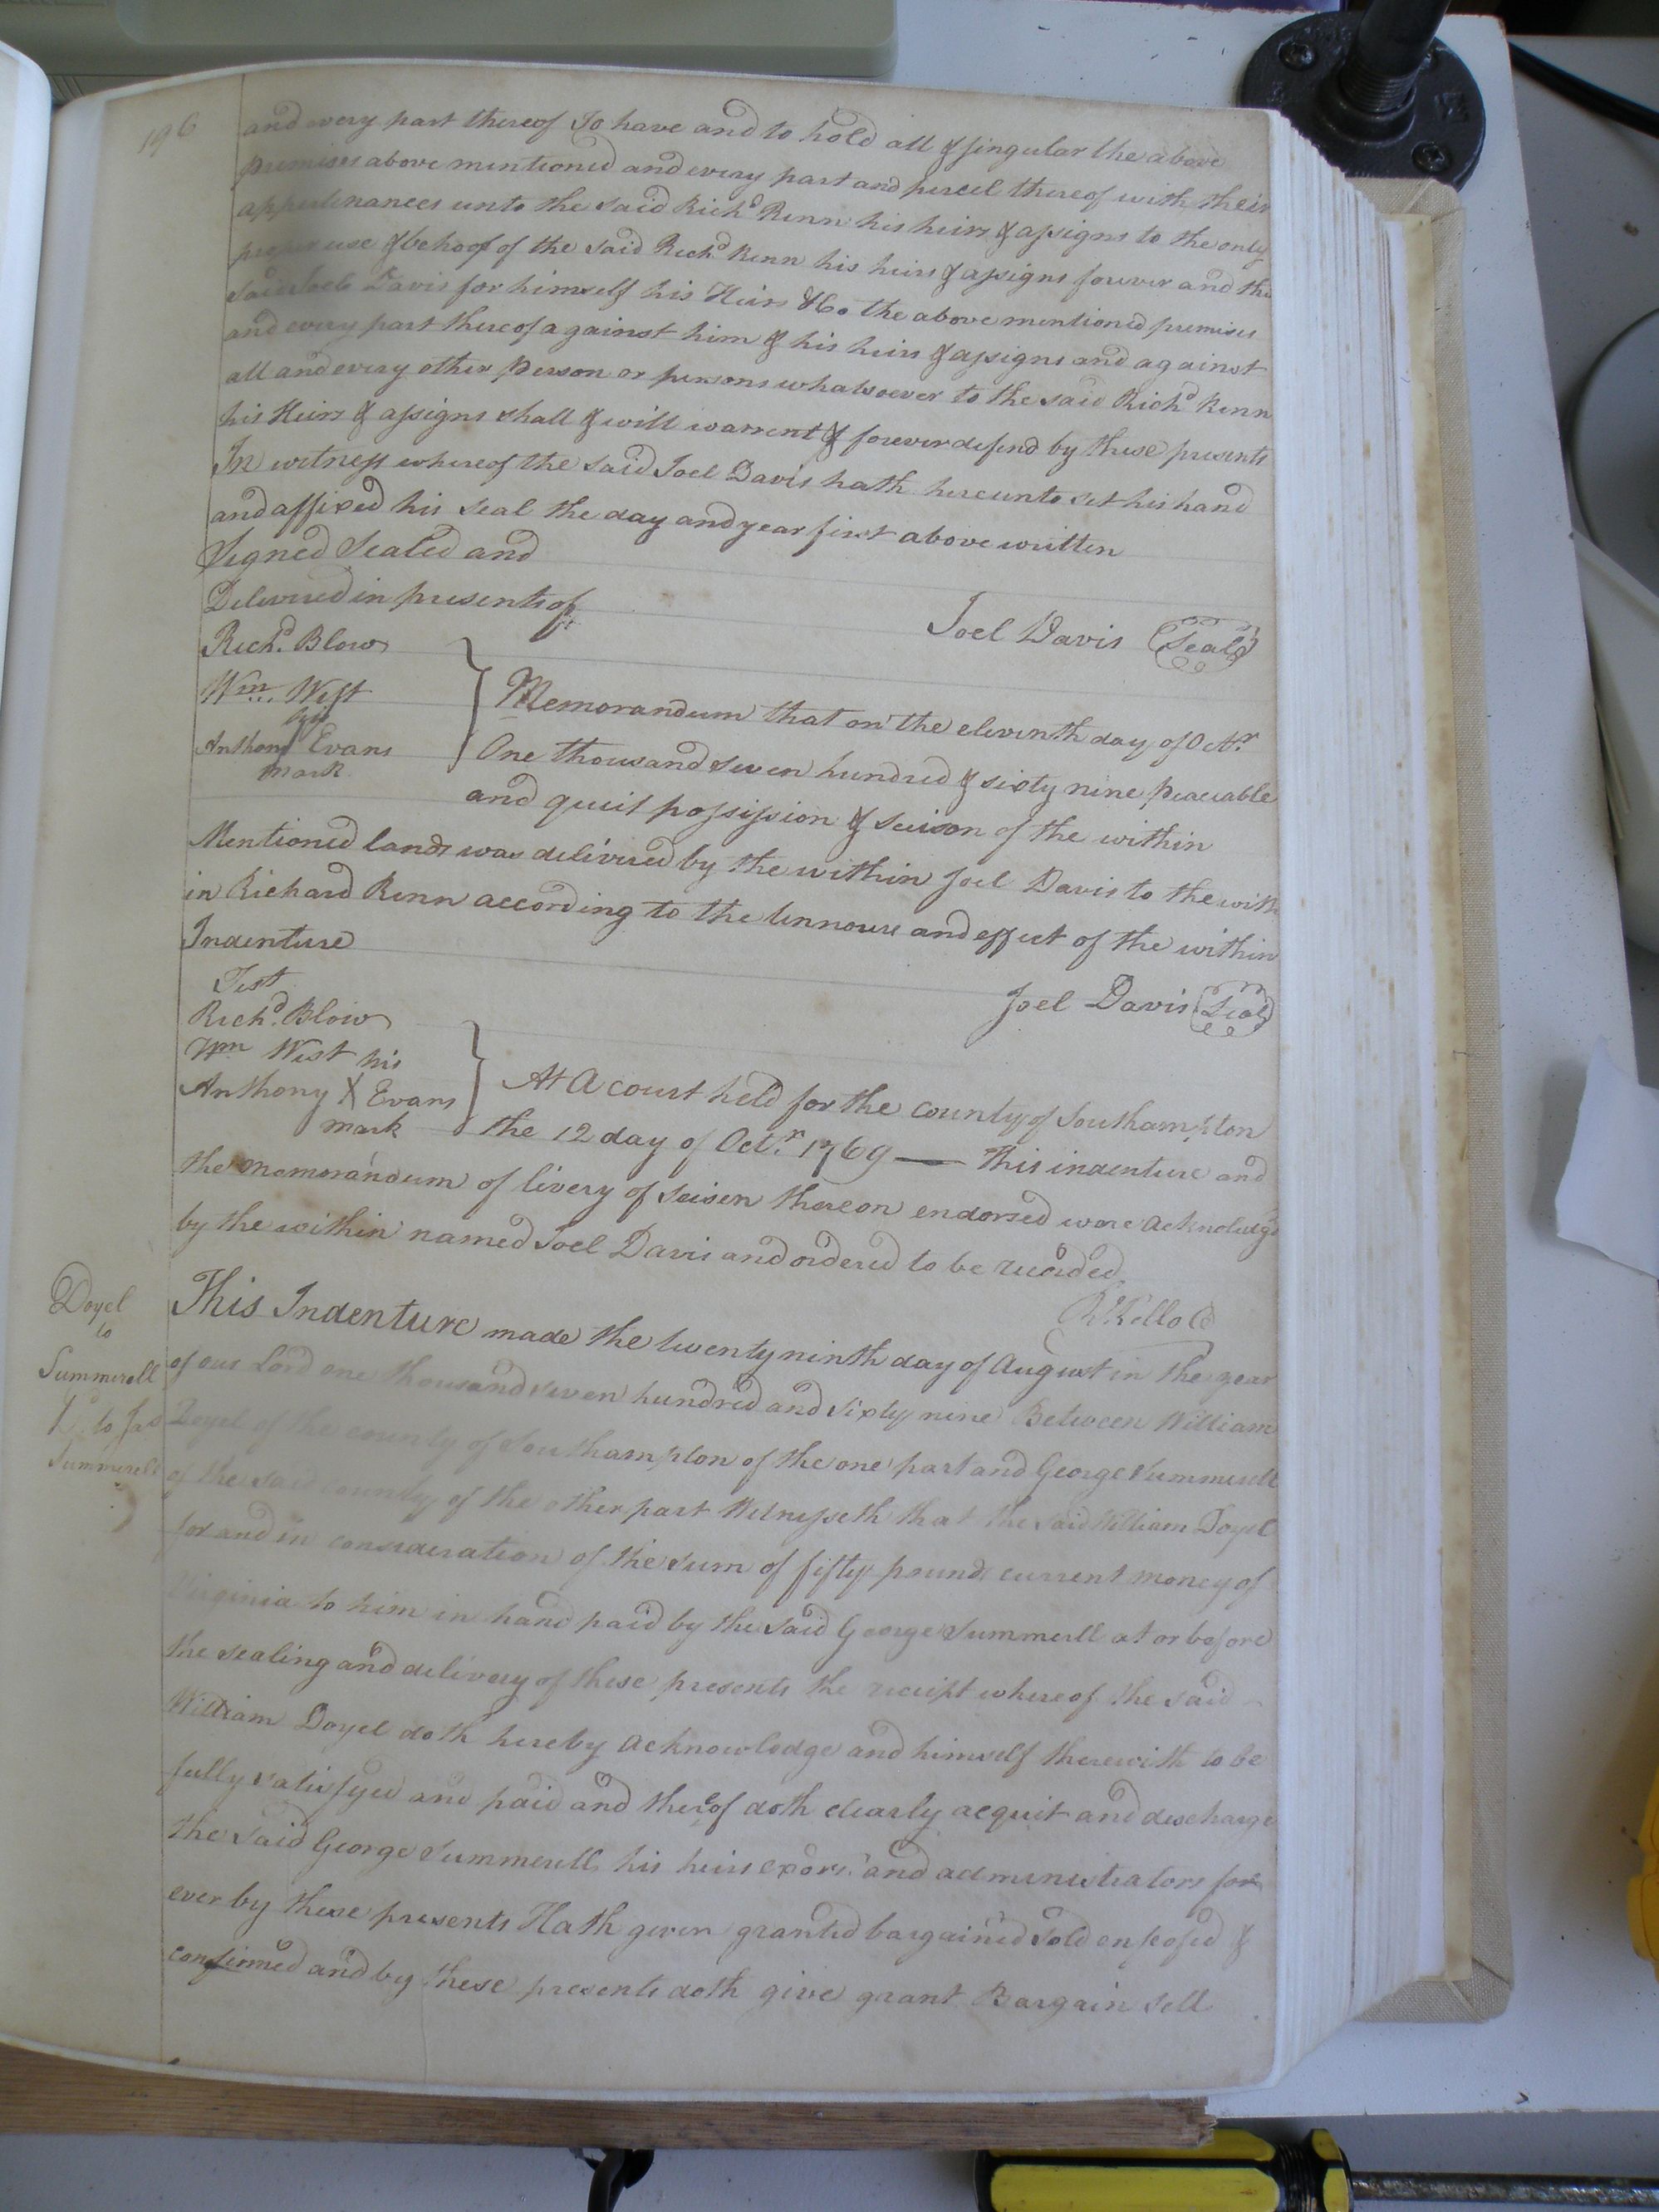 196
and every part thereof To have and to hold all & singular the above
premises above mentioned and every part and percel thereof with their
appurtenances unto the said Richd Renn his heirs & assigns to the only
proper use & behoof of the said Richd Renn his heirs & assigns forever and the
said Joel Davis for himself his Heirs &Co the above mentioned premises
and every part thereof against him & his heirs & assigns and against
all and every other Person or persons whatsoever to the said Richd Renn
his Heirs & assigns shall & will warrent & forever defend by these presents
In witness whereof the said Joel Davis hath hereunto set his hand
and affixed his seal the day and year first above written
Signed Sealed and
Delivered in presents of
Joel Davis (Seal)
Richd. Blow
Wm. West
his
Anthony Evans
mark
Memorandum that on the eleventh day of Octr
One thousand seven hundred & sixty nine peaceable
and quiet possission & seison of the within
Mentioned lands was delivered by the within Joel Davis to the with
in Richard Renn according to the tennoure and effect of the within
Indenture
Test
Joel Davis (Seal)
Richd. Blow
Wm West his
Anthony X Evans
mark
At A court held for the county of Southampton
the 12 day of Octr. 1769 — this indenture and
the memorandum of livery of seisen thereon endorsed were acknoledg'd
by the within named Joel Davis and ordered to be recorded.
Rd Kello CC
Doyel
to
Summerell
to Jas
Summerell
This Indenture made the twenty ninth day of August in the year
of our Lord one thousand seven hundred and sixty nine Between William
Doyel of the county of Southampton of the one part and George Summerell
of the said county of the other part Witnesseth that the said William Doyel
for and in consideration of the sum of fifty pounds current money of
Virginia to him in hand paid by the said George Summerell at or before
the sealing and delivery of these presents the receipt whereof the said
William Doyel doth hereby acknowledge and himself therewith to be
fully satisfyed and paid and thereof doth clearly acquit and discharge
the said George Summerell his heirs exors. and administrators for
ever by these presents Hath given granted bargained sold enfeofed &
confirmed and by these presents doth give grant Bargain sell